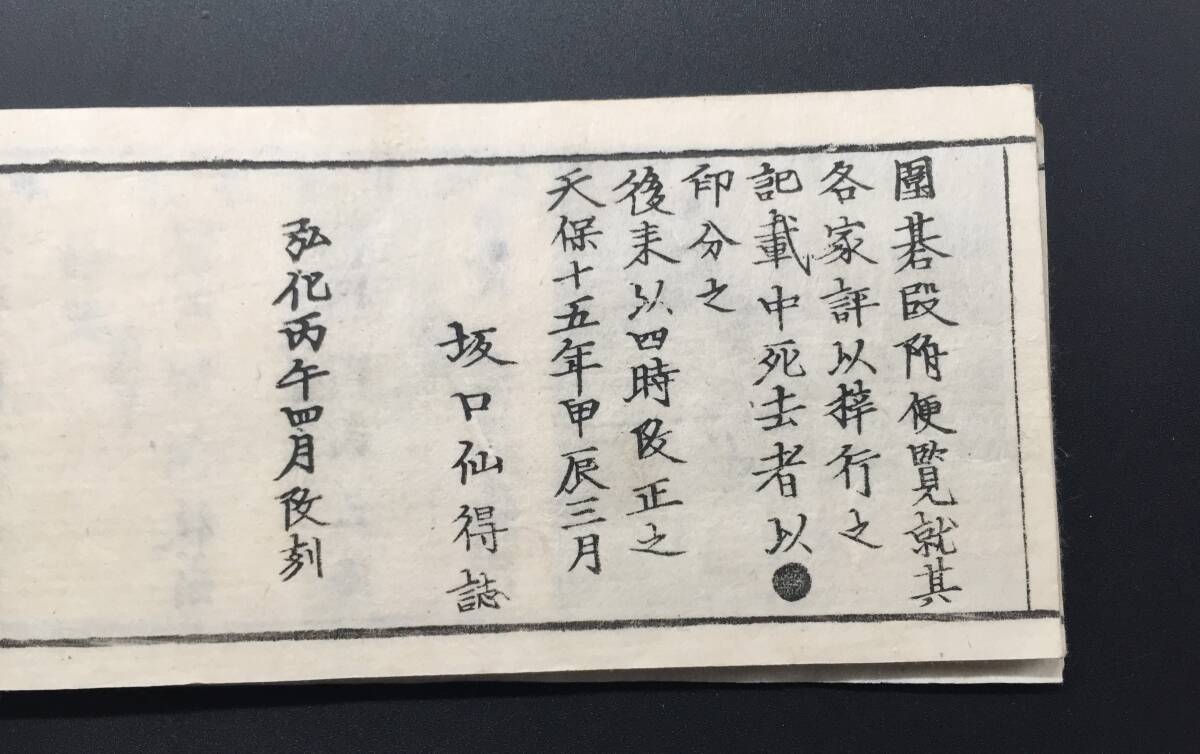 圍碁段附便覧就其
各家評以梓行之
記載中死去者以●
印分之
後来以四時改正之
天保十五年甲辰三月
坂口仙得誌
弘化丙午四月改刻